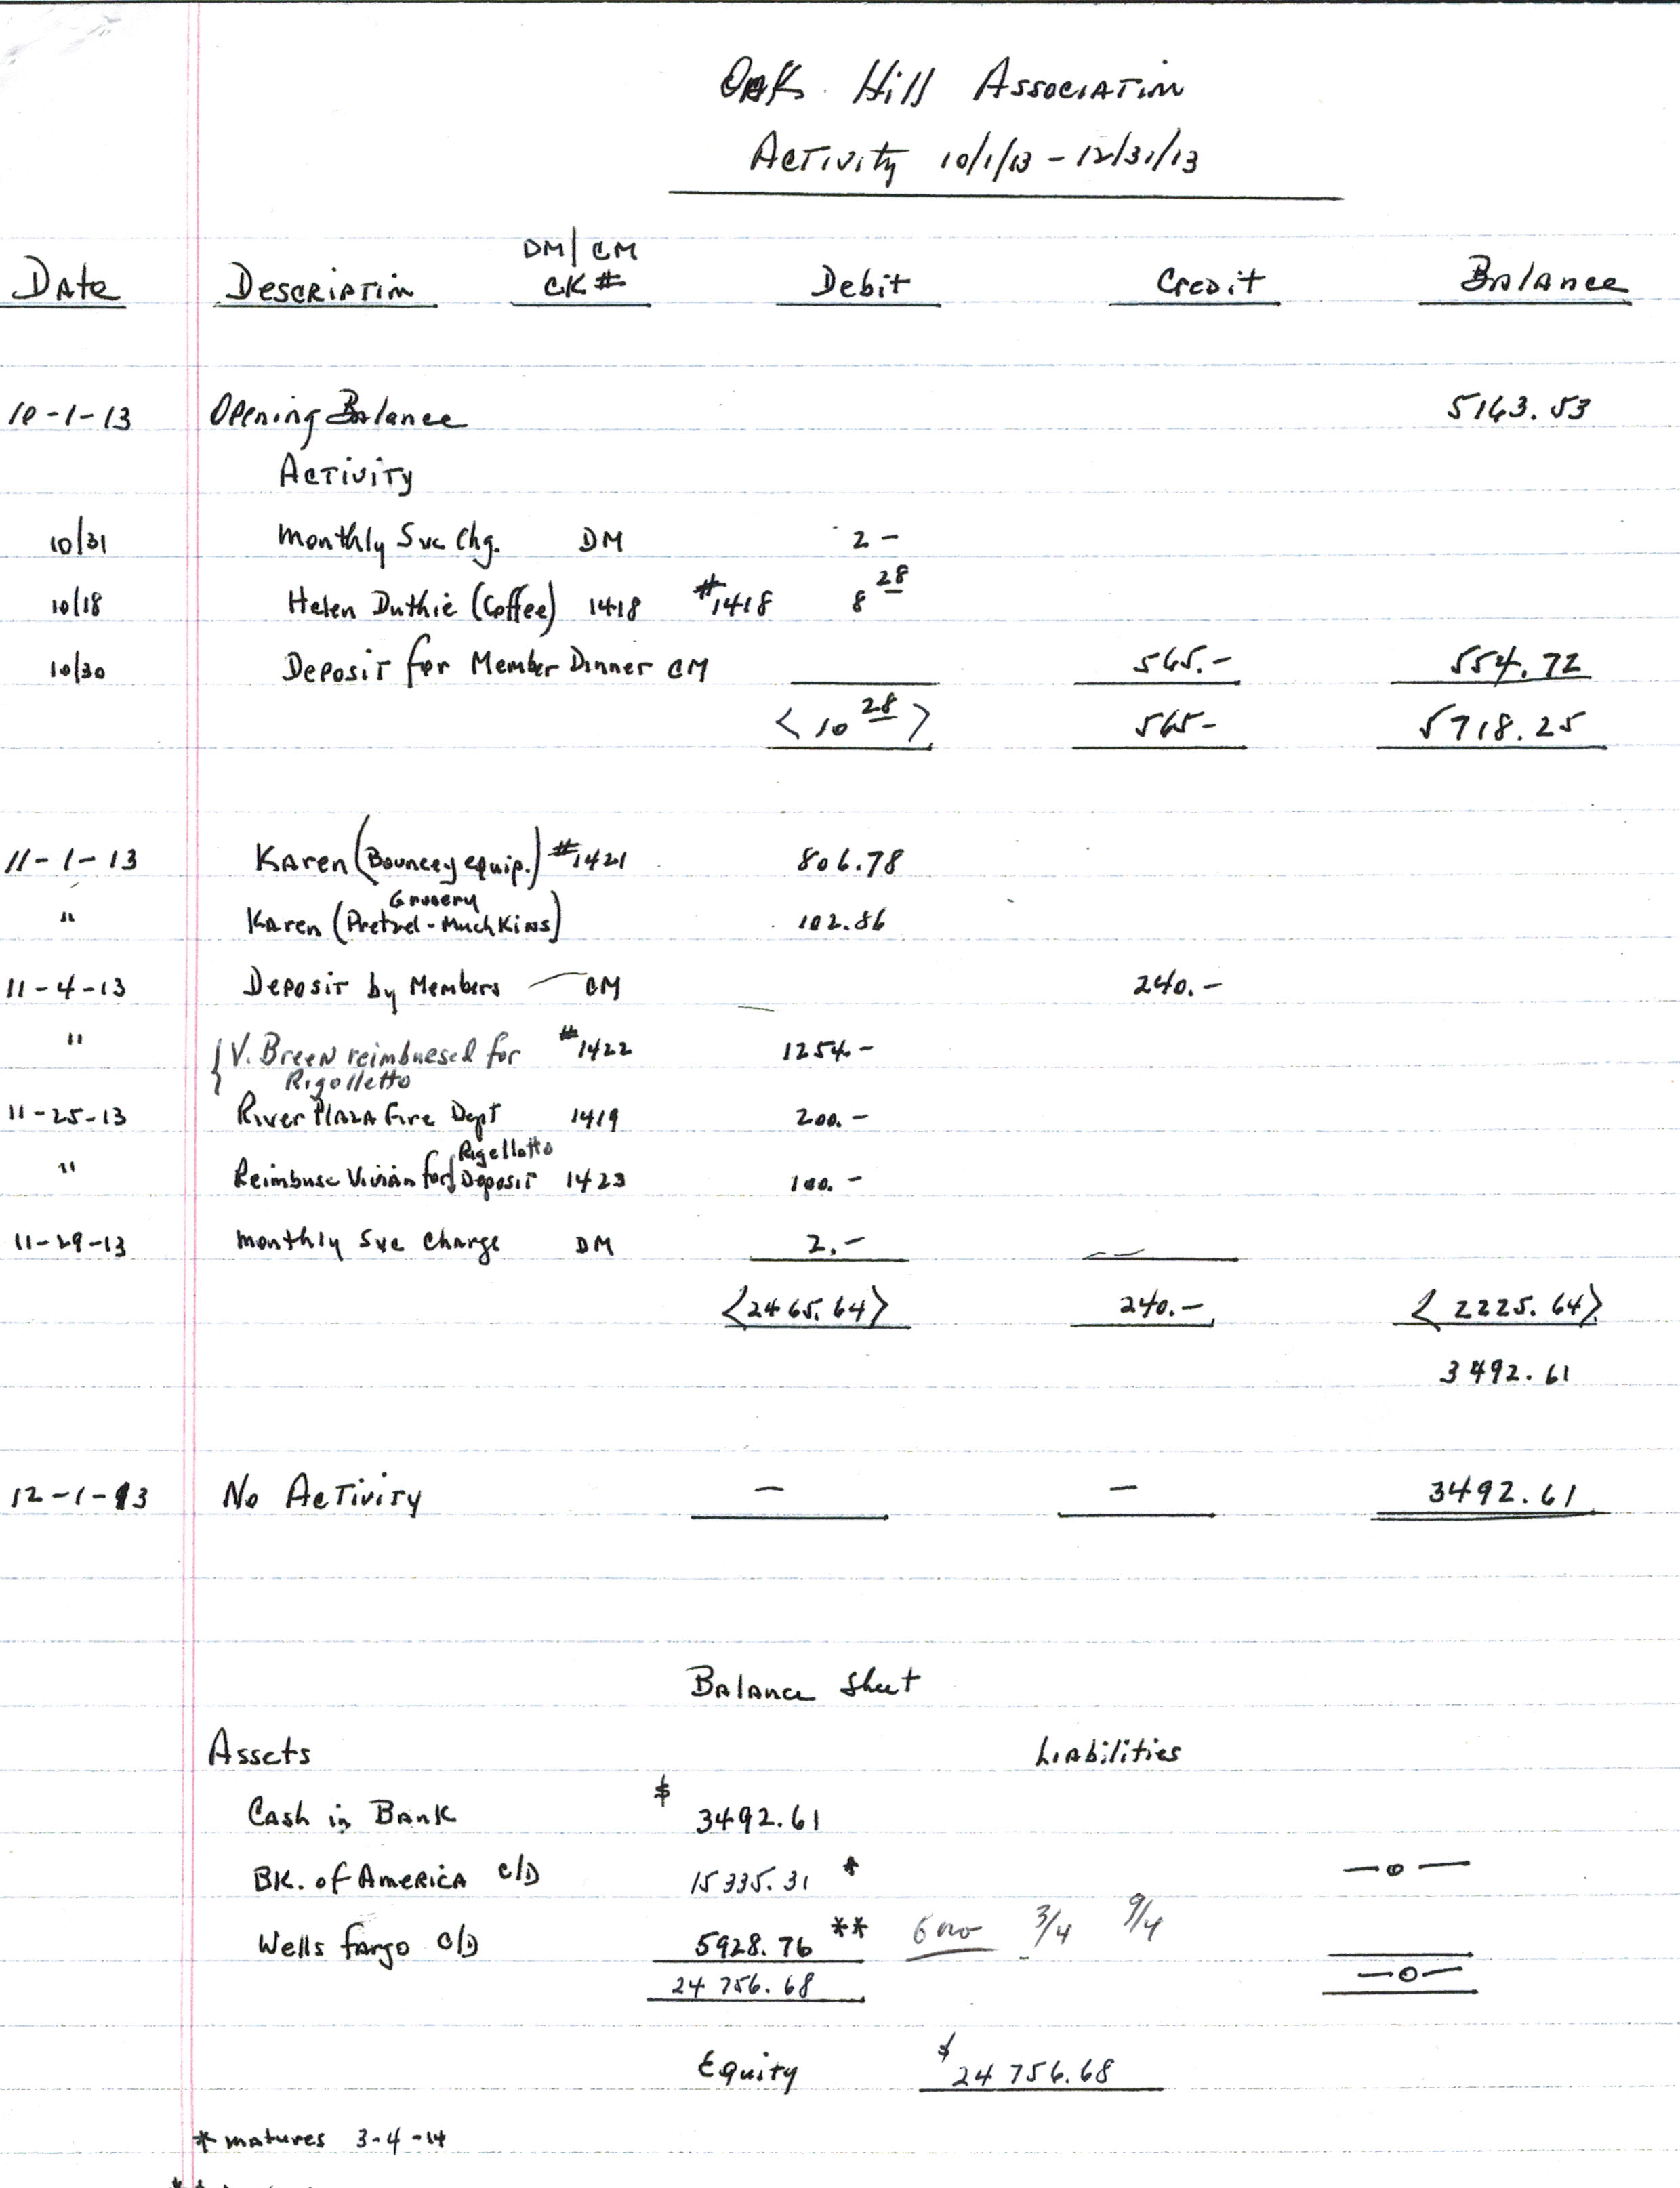 Oak Hill Association
Activity 10/1/13 - 12/31/13
DM/CM
Date Description CK# Debit Credit Balance
10-1-13 Opening Balance 5163.53
Activity
10/31 Monthly Svc Chg. DM 2 -
10/18 Helen Duthie (Coffee) 1418 #1418 8 28
10/30 Deposit for Member Dinner CM 565.- 554.72
<10 28> 565- 5718.25
11-1-13 Karen (Bouncey equip.) #1421 806.78
Grocery
" Karen (Pretzel - Muchkins) 102.86
11-4-13 Deposit by Members — CM 240.-
" { V. Breen reimbuesed for #1422 1254.-
Rigolletto
11-25-13 River Plaza Fire Dept 1419 200.-
Rigelletto
" Reimbuse Vivian for Deposit 1423 100.-
11-29-13 Monthly Sve Charge DM 2.-
<2465.64> 240.- <2225.64>
3492.61
12-1-13 No Activity - - 3492.61
Balance Sheet
Assets Liabilities
Cash in Bank $ 3492.61
BK. of America C/D 15335.31 * -0-
Wells Fargo C/D 5928.76 ** 6 mo 3/4 9/4
24756.68 -0-
Equity $24756.68
* matures 3-4-14